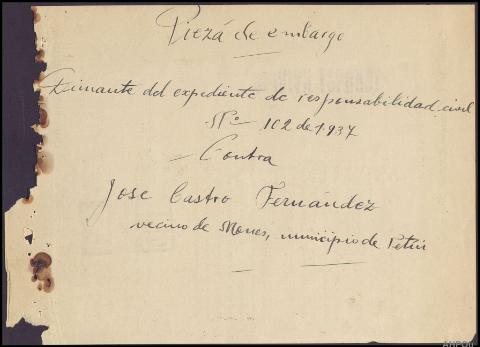 Pieza de embargo
Dimante del expediente de responsabilidad civil
Nº 102 de 1.937
Contra
Jose Castro Fernández
vecino de Mones, municipio de Petín
AHPOU